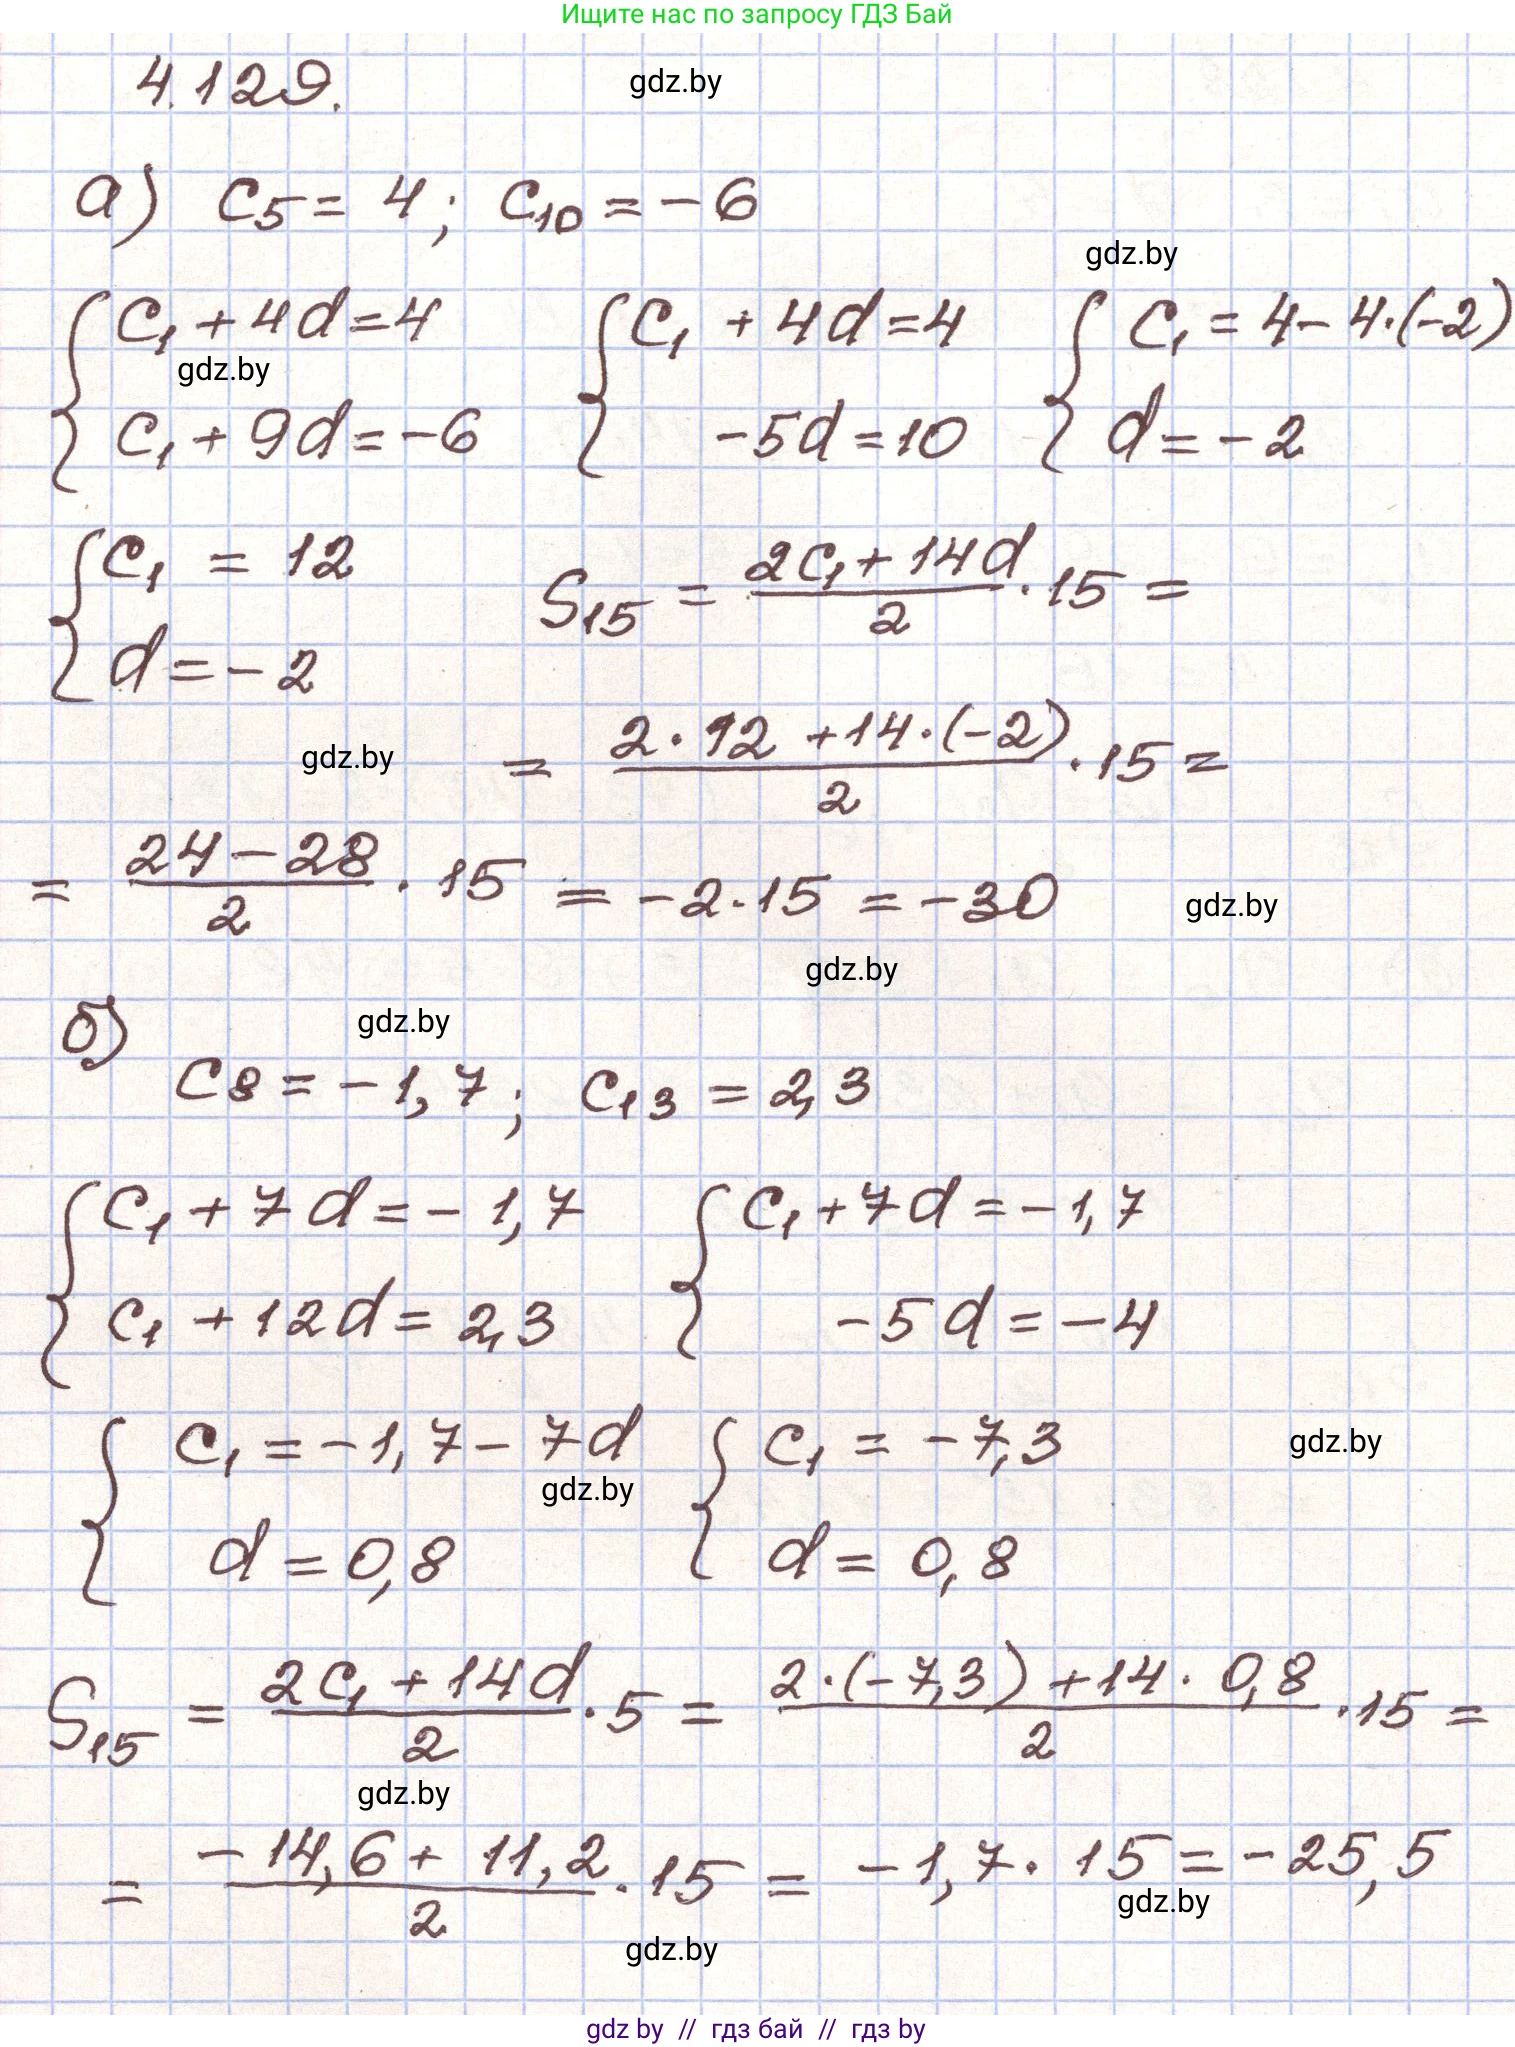 Ищите нас по запросу ГДЗ Бай
4.129.
gdz.by
а) c₅ = 4; c₁₀ = -6
gdz.by
{ c₁ + 4d = 4 { c₁ + 4d = 4 { c₁ = 4 - 4·(-2)
gdz.by
c₁ + 9d = -6 -5d = 10 d = -2
{ c₁ = 12 S₁₅ = (2c₁ + 14d)/2 · 15 =
d = -2
gdz.by
= (2·12 + 14·(-2))/2 · 15 =
= (24 - 28)/2 · 15 = -2·15 = -30
gdz.by
gdz.by
gdz.by
б)
c₈ = -1,7; c₁₃ = 2,3
{ c₁ + 7d = -1,7 { c₁ + 7d = -1,7
c₁ + 12d = 2,3 -5d = -4
{ c₁ = -1,7 - 7d { c₁ = -7,3
gdz.by
gdz.by
d = 0,8 d = 0,8
S₁₅ = (2c₁ + 14d)/2 · 5 = (2·(-7,3) + 14·0,8)/2 · 15 =
gdz.by
= (-14,6 + 11,2)/2 · 15 = -1,7 · 15 = -25,5
gdz.by
gdz.by
gdz by // гдз бай // гдз by